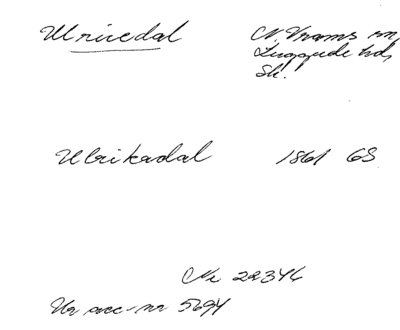 Ulricedal N. Vrams sn,
Luggude hd,
Sk.
Ulrikadal 1861 GS
Nr 22346
Ur acc-nr 5694